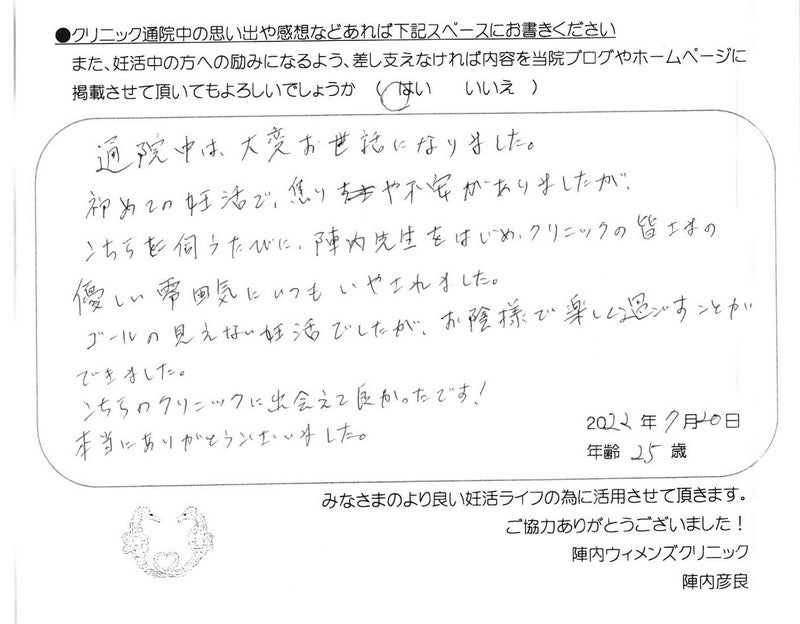 ●クリニック通院中の思い出や感想などあれば下記スペースにお書きください
また、妊活中の方への励みになるよう、差し支えなければ内容を当院ブログやホームページに
掲載させて頂いてもよろしいでしょうか （ はい　いいえ ）
通院中は、大変お世話になりました。
初めての妊活で、焦りや不安がありましたが、
こちらを伺うたびに、陣内先生をはじめ、クリニックの皆さまの
優しい雰囲気にいつもいやされました。
ゴールの見えない妊活でしたが、お陰様で楽しく過ごすことが
できました。
こちらのクリニックに出会えて良かったです！
本当にありがとうございました。
2022 年 7月20日
年齢 25 歳
みなさまのより良い妊活ライフの為に活用させて頂きます。
ご協力ありがとうございました！
陣内ウィメンズクリニック
陣内彦良